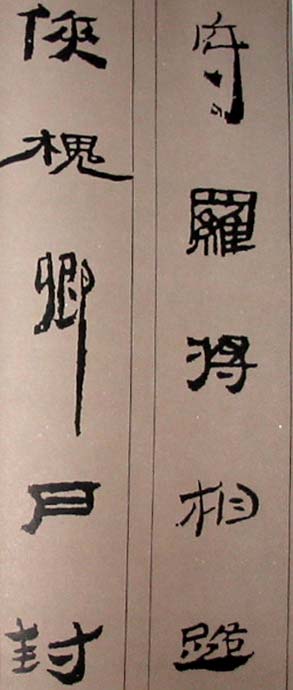 府羅將相路
俠槐卿戶封